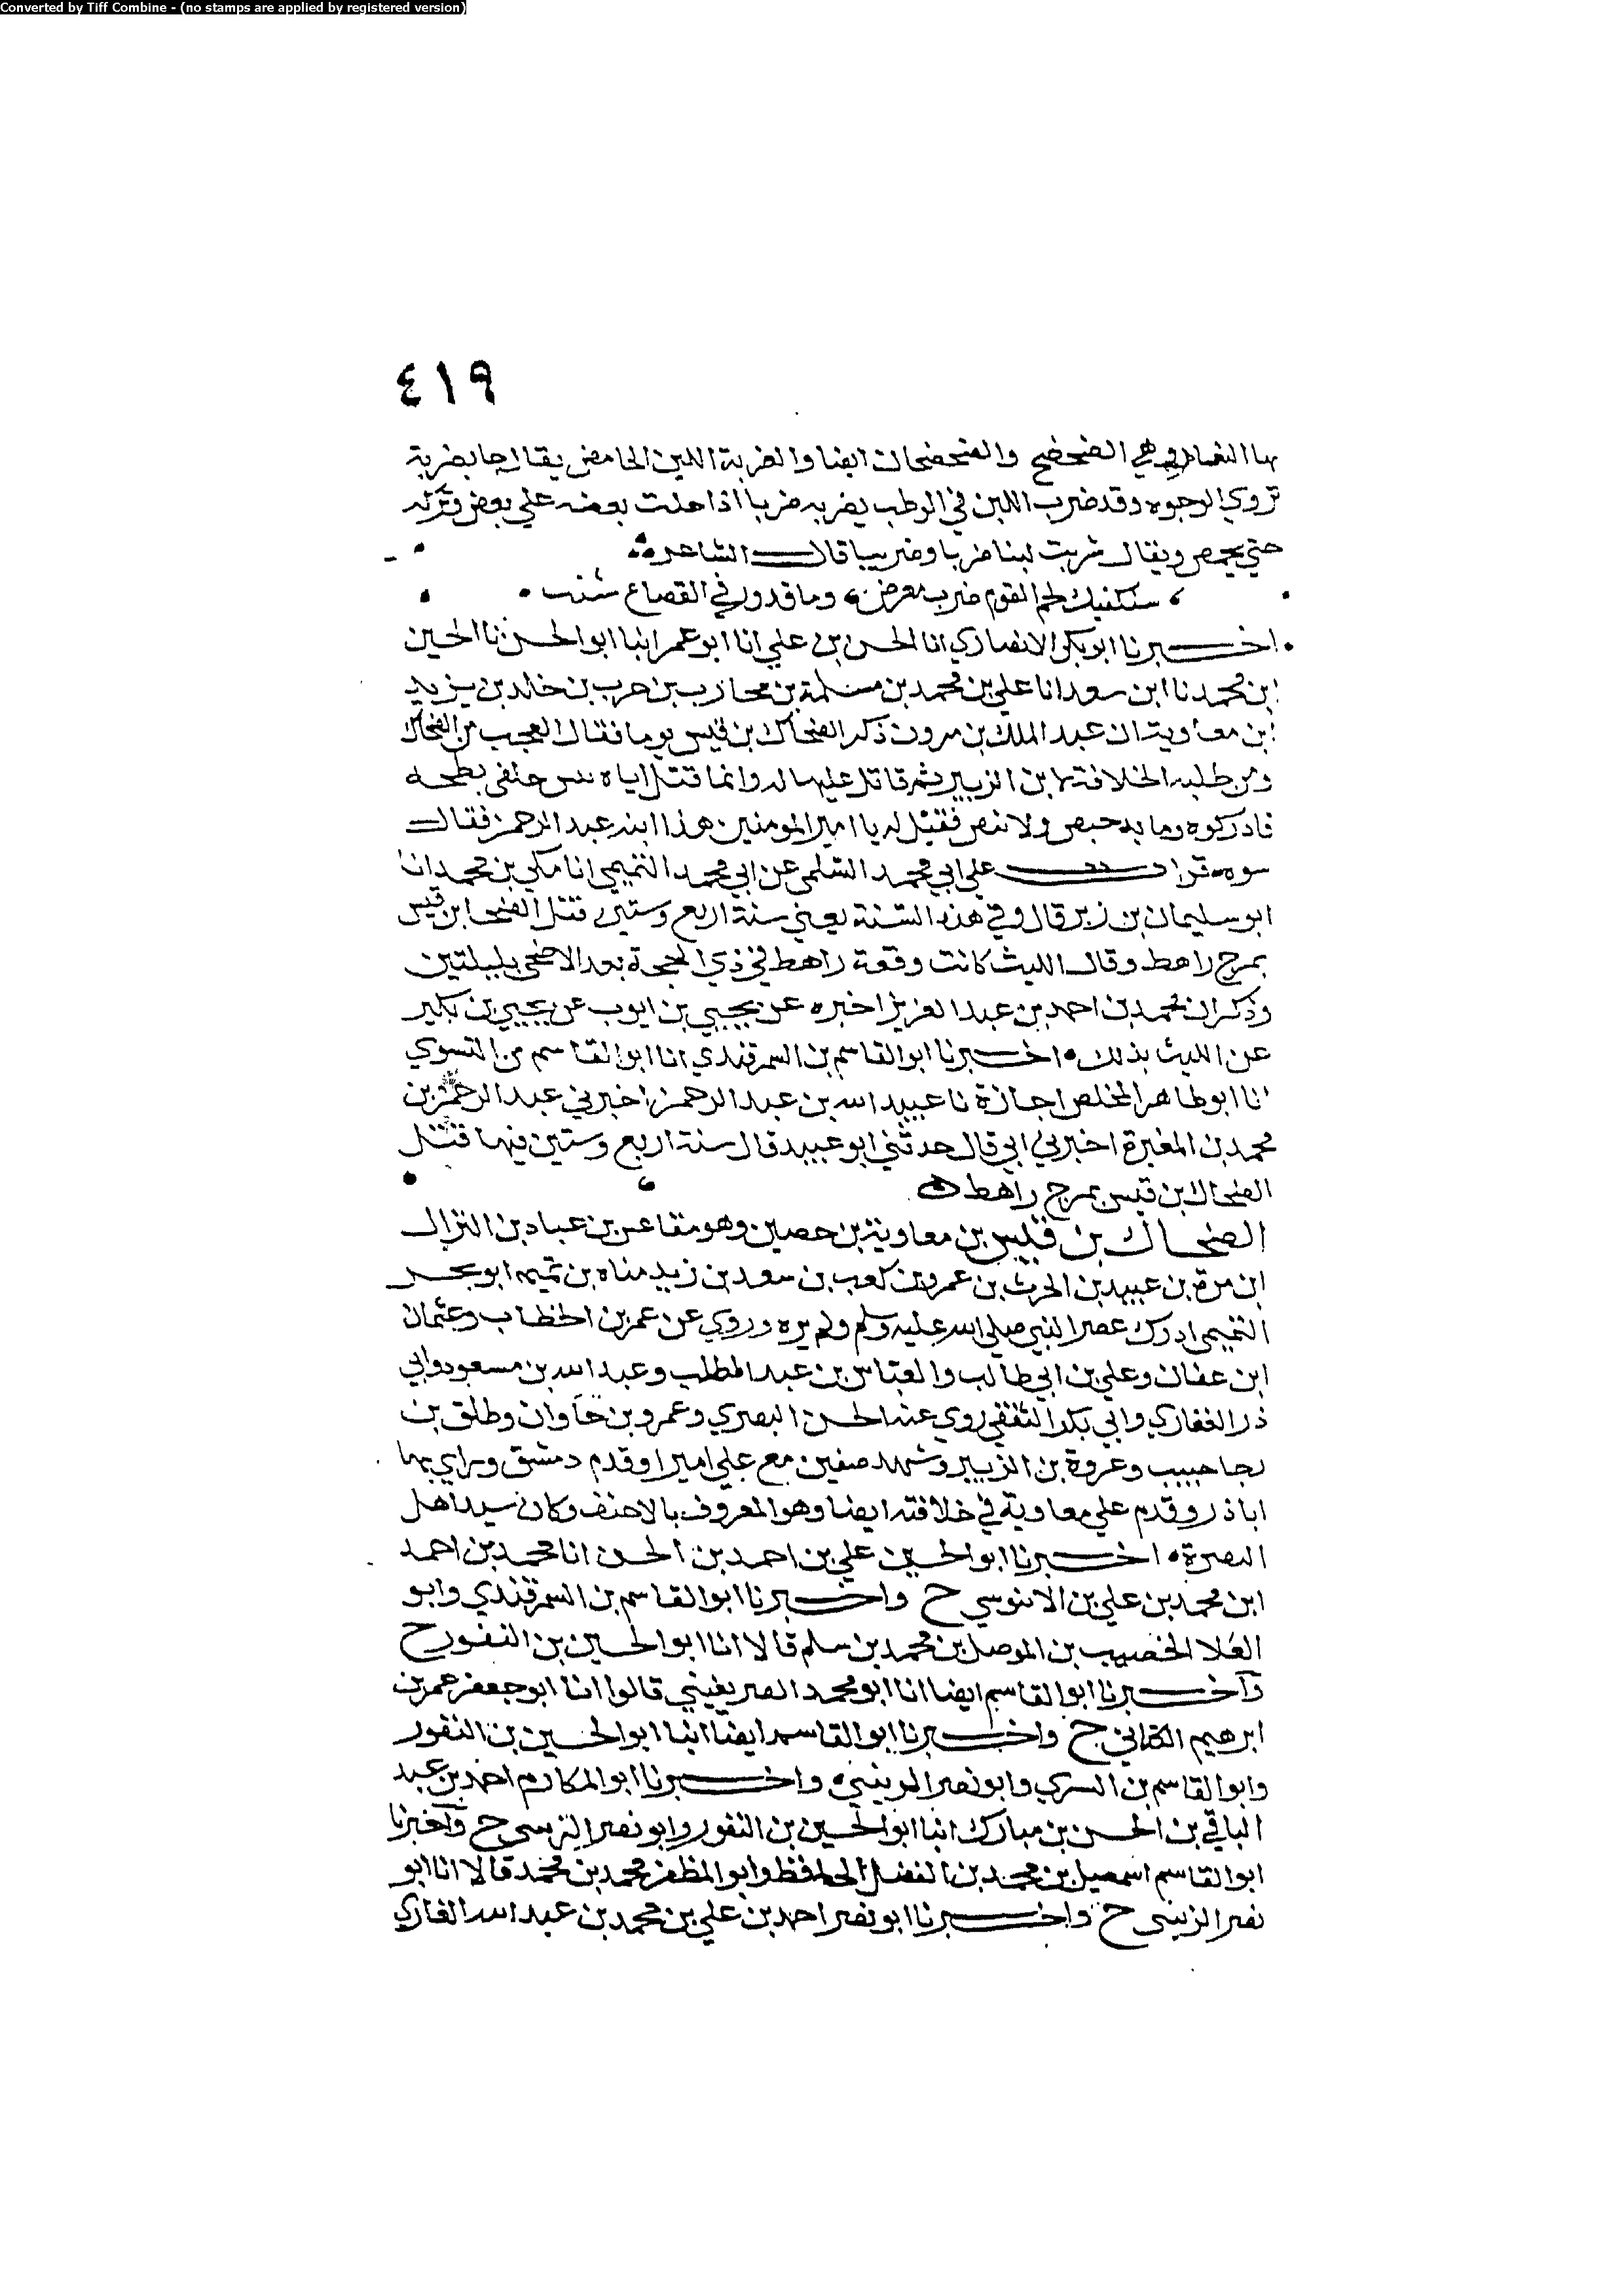 Converted by Tiff Combine - (no stamps are applied by registered version)
٤١٩
بها الغمار وهي الضحضح والضحضحان ايضا والضربة اللبن الحامض يقال جا بضربة
تزوي الوجوه وقد ضرب اللبن في الوطب يضربه ضربا اذا حلت بعضه علي بعض وتركه
حتي يحمص ويقال شربت لبنا ضربا وضريبا قال الشاعر
ستكفيك لحم القوم ضرب معرض وما قدور في القصاع شنب
اخبرنا ابو بكر الانصاري انا الحسن بن علي انا ابو عمر انبا ابو الحسن نا الحسين
ابن محمد نا ابن سعد انا علي بن محمد بن مسلمة بن محارب بن حرب بن خالد بن يزيد
ابن معاوية ان عبد الملك بن مرون ذكر الضحاك بن قيس يوما فقال العجب من الضحاك
ومن طلبه الخلافة لابن الزبير ثم قاتل عليها له وانما قتل اياه
فادركوه وما به حبص ولا نبص فقيل له يا امير المومنين هذا ابنه عبد الرحمن فقال
سوه قرات علي ابي محمد السلمي عن ابي محمد التميمي انا مكي بن محمد انا
ابو سليمان بن زبر قال وفي هذه السنة يعني سنة اربع وستين قتل الضحا ابن قيس
بمرج راهط وقال الليث كانت وقعة راهط في ذي الحجة بعد الاضحى بليلتين
وذكر ان محمد بن احمد بن عبد العزيز اخبره عن يحيي بن ايوب عن يحيي بن بكير
عن الليث بذلك اخبرنا ابو القاسم بن السمرقندي انا ابو القاسم من التسوي
انا ابو طاهر المخلص اجازة نا عبيد الله بن عبد الرحمن اخبرني عبد الرحمن بن
محمد بن المغيرة اخبرني ابي قال حدثني ابو عبيد قال سنة اربع وستين فيها قتل
الضحاك بن قيس بمرج راهط
الضحاك بن قيس بن معاوية بن حصين وهو مقاعس بن عباد بن النزال
ابن مرة بن عبيد بن الحرث بن عمرو بن كعب بن سعد بن زيد مناه بن تميم ابو بحر
التميمي ادرك عصر النبي صلي الله عليه وسلم ولم يره وروي عن عمر بن الخطاب وعثمان
ابن عفان وعلي بن ابي طالب والعباس بن عبد المطلب وعبد الله بن مسعود وابي
ذر الغفاري وابي بكر الثقفي روي عنه الحسن البصري وعمرو بن جاوان وطلق بن
بجا حبيب وعروة بن الزبير وشهد صفين مع علي اميرا وقدم دمشق وراي بها
اباذر وقدم علي معاوية في خلافته ايضا وهو المعروف بالاحنف وكان سيد اهل
البصرة اخبرنا ابو الحسين علي بن احمد بن الحسن انا محمد بن احمد
ابن محمد بن علي بن الابنوسي ح واخبرنا ابو القاسم بن السمرقندي وابو
العلا الخصيب بن الموصل بن محمد بن سلم قالا انا ابو الحسين بن النقور ح
واخبرنا ابو القاسم ايضا انا ابو محمد الصريفيني قالوا انا ابو جعفر عمر بن
ابرهيم الكتاني ح واخبرنا ابو القاسم ايضا انبا ابو الحسين بن النقور
وابو القاسم بن السري وابو نصر الزينبي واخبرنا ابو المكارم احمد بن عبد
الباقي بن الحسن بن مبارك انبا ابو الحسين بن النقور وابو نصر الزينبي ح واخبرنا
ابو القاسم اسمعيل بن محمد بن الفضل الحافظ وابو المظفر محمد بن محمد قالا انا ابو
نصر الزينبي ح واخبرنا ابو نصر احمد بن علي بن محمد بن عبد الله الغازي